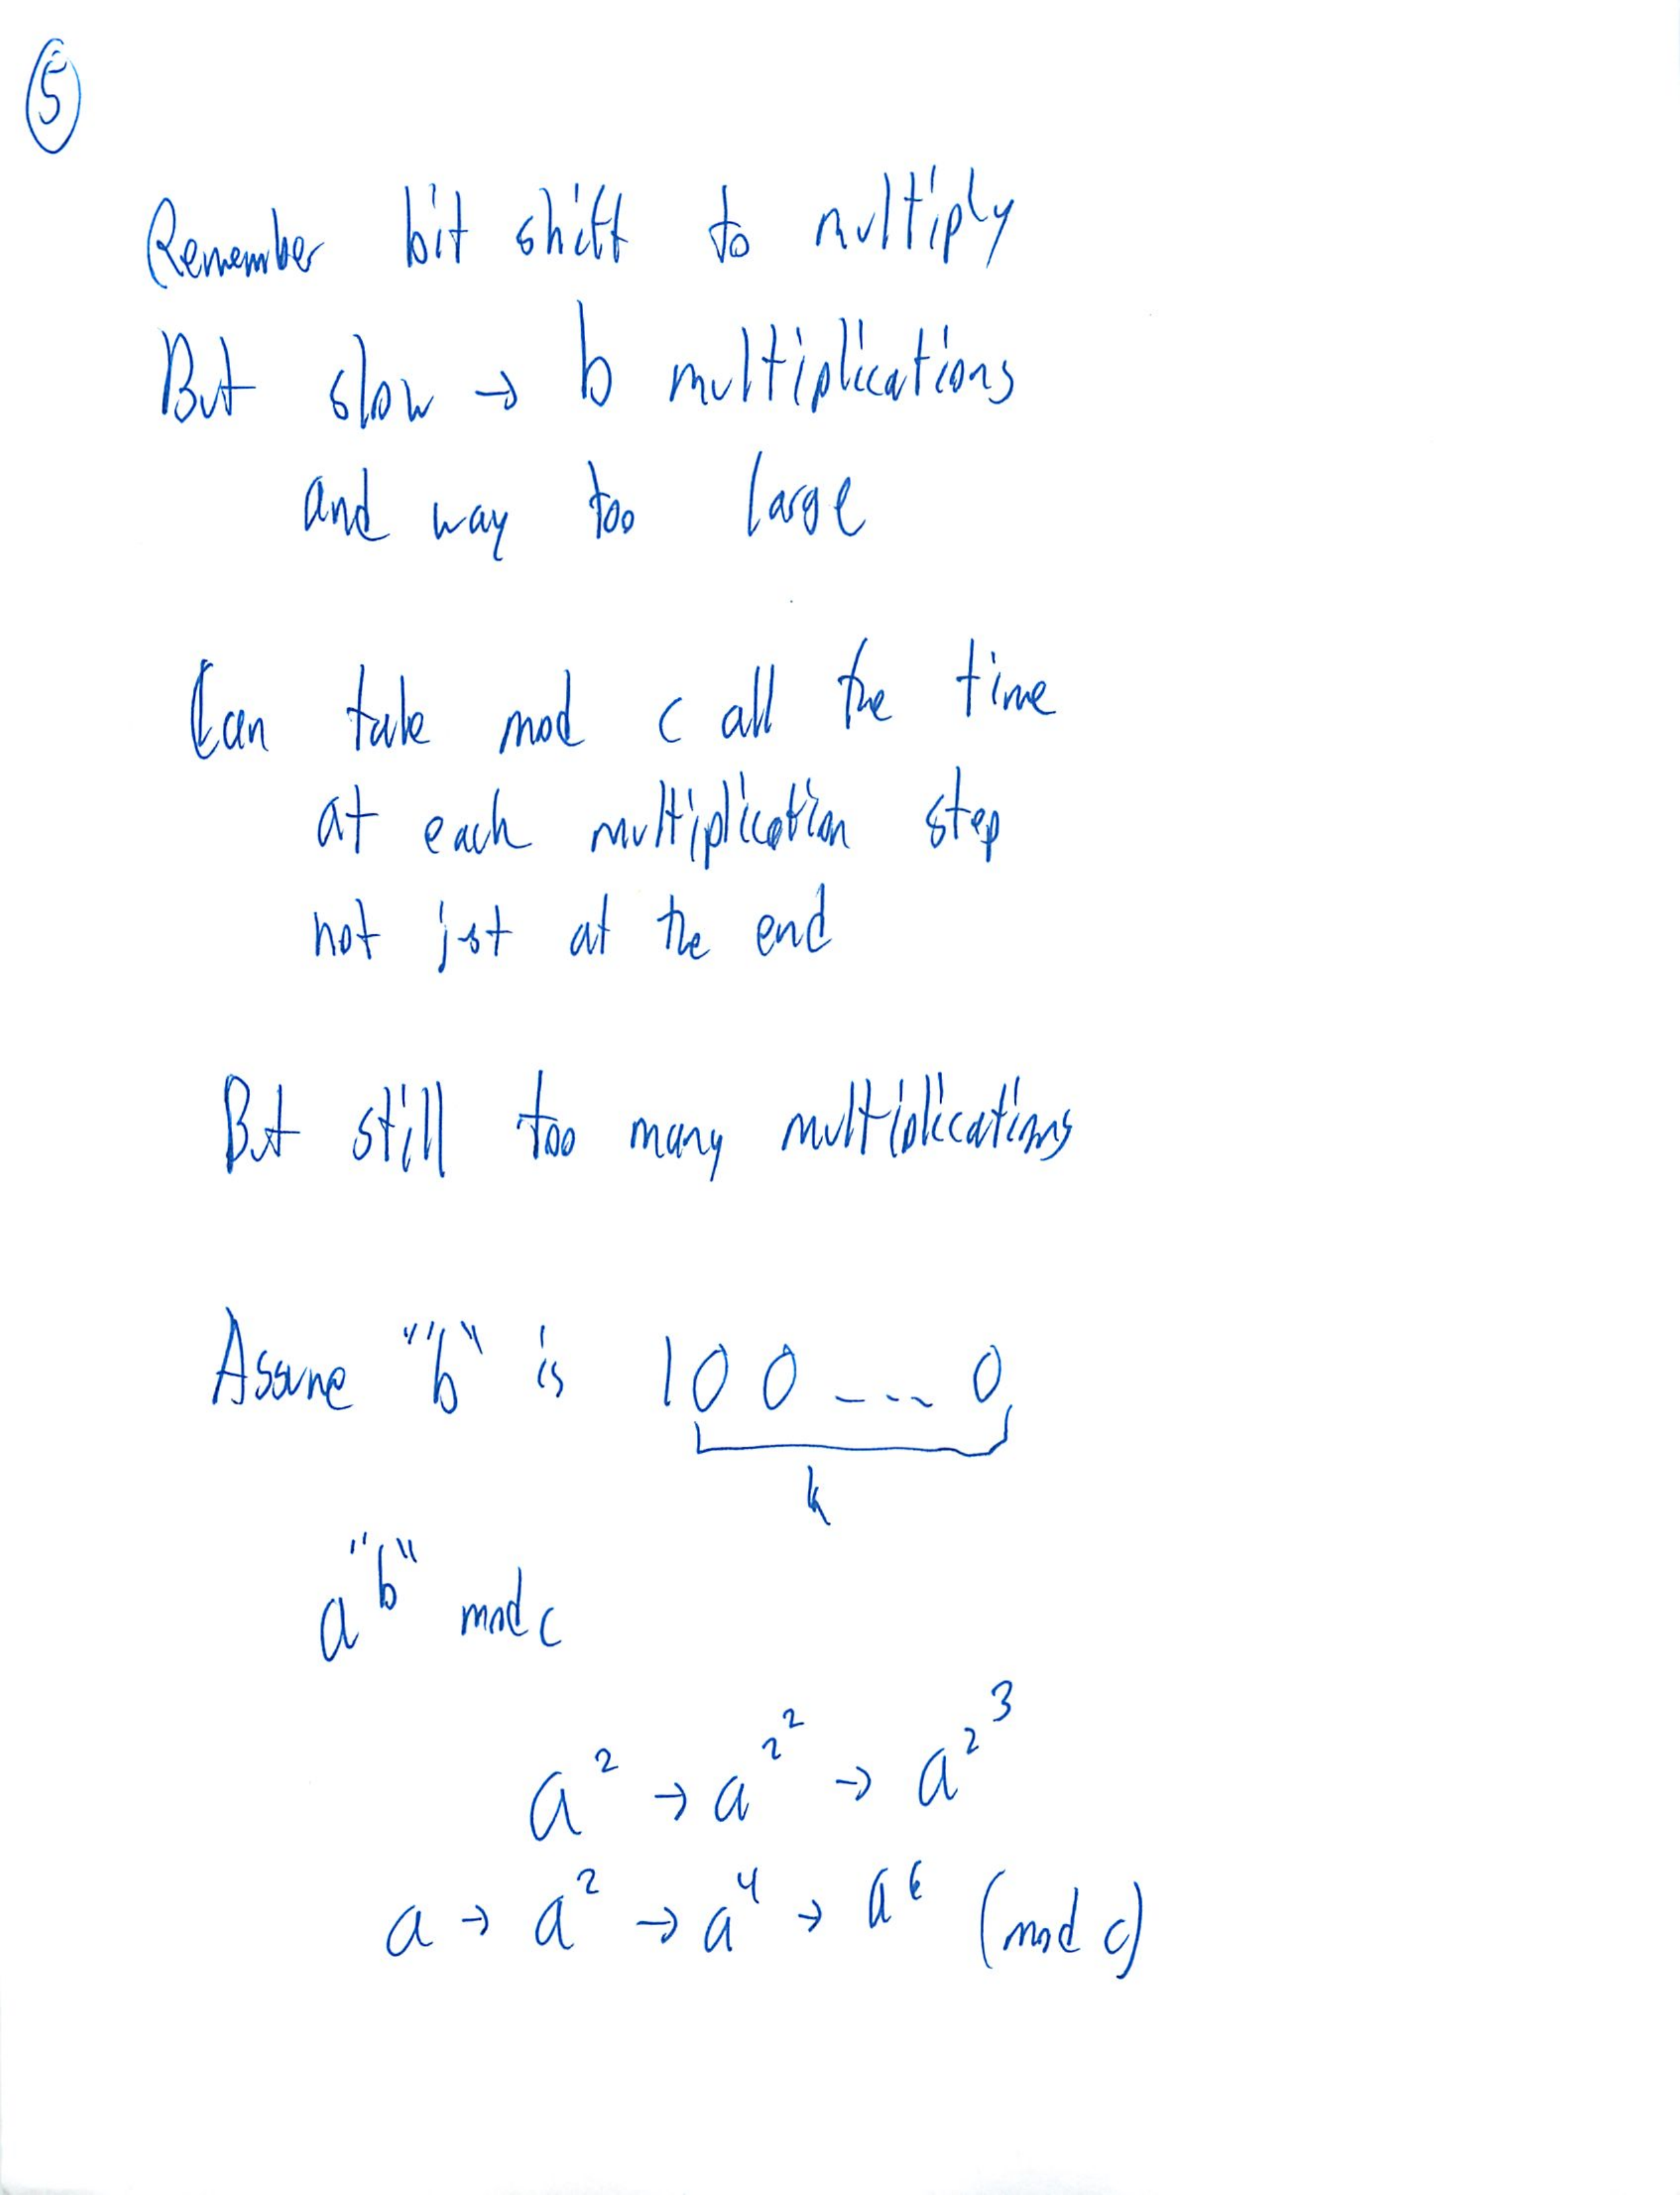 5
Remember bit shift to multiply
But slow → b multiplications
and way too large
Can take mod c all the time
at each multiplication step
not just at the end
But still too many multiplications
Assume "b" is 100---0
k
a^"b" mod c
a^2 → a^2^2 → a^2^3
a → a^2 → a^4 → a^6 (mod c)